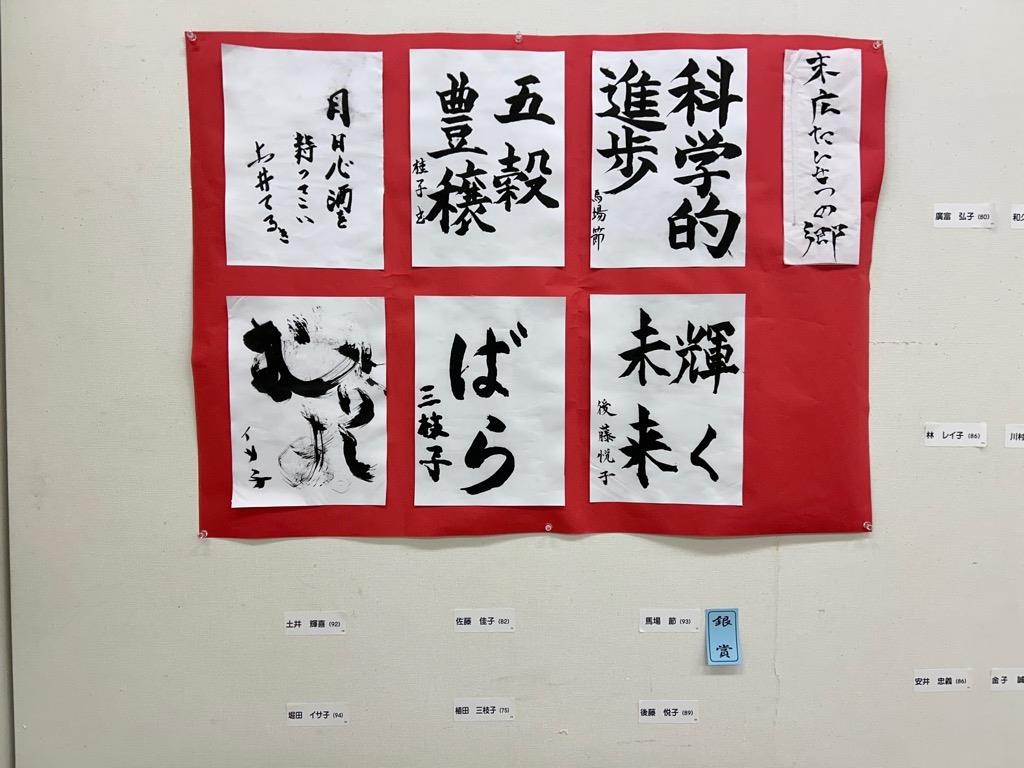 末広たいまつの郷
科学的
進歩
馬場節
五穀
豊穣
桂子书
月日心酒を
持ってこい
土井てるき
輝く
未来
後藤悦子
ばら
三枝子
イサ子
土井 輝喜 (92)
佐藤 佳子 (82)
馬場 節 (93)
銀賞
堀田 イサ子 (94)
植田 三枝子 (75)
後藤 悦子 (89)
廣富 弘子 (80)
林 レイ子 (86)
川村
安井 忠義 (86)
金子 誠